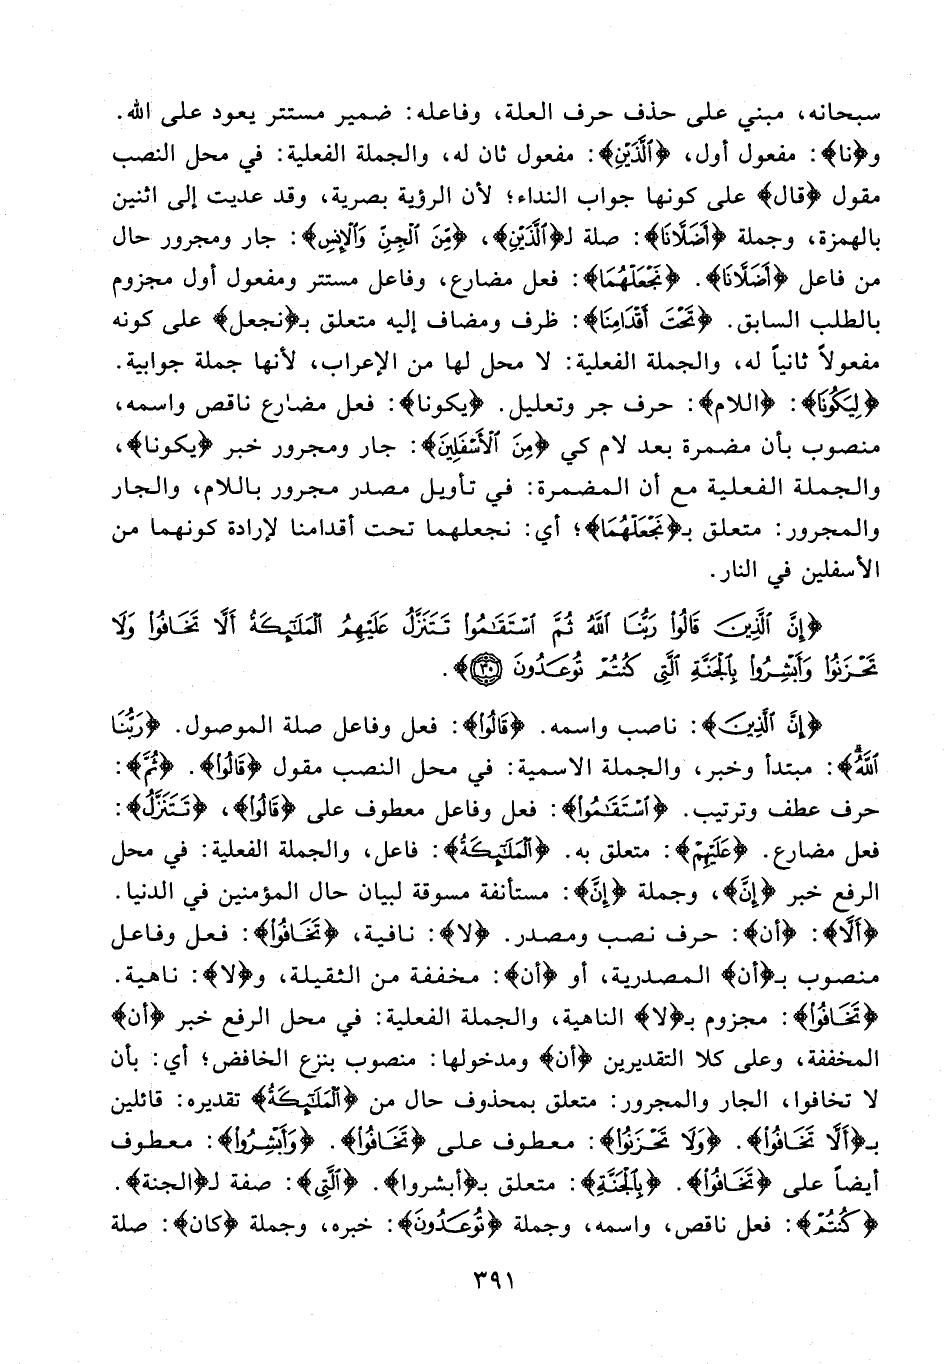 سبحانه، مبني على حذف حرف العلة، وفاعله: ضمير مستتر يعود على الله.
و﴿نا﴾: مفعول أول، ﴿ٱلَّذَيْنِ﴾: مفعول ثان له، والجملة الفعلية: في محل النصب
مقول ﴿قال﴾ على كونها جواب النداء؛ لأن الرؤية بصرية، وقد عديت إلى اثنين
بالهمزة، وجملة ﴿أَضَلَّانَا﴾: صلة لـ﴿ٱلَّذَيْنِ﴾، ﴿مِنَ ٱلْجِنِّ وَٱلْإِنسِ﴾: جار ومجرور حال
من فاعل ﴿أَضَلَّانَا﴾. ﴿نَجْعَلْهُمَا﴾: فعل مضارع، وفاعل مستتر ومفعول أول مجزوم
بالطلب السابق. ﴿تَحْتَ أَقْدَامِنَا﴾: ظرف ومضاف إليه متعلق بـ﴿نجعل﴾ على كونه
مفعولاً ثانياً له، والجملة الفعلية: لا محل لها من الإعراب، لأنها جملة جوابية.
﴿لِيَكُونَا﴾: ﴿اللام﴾: حرف جر وتعليل. ﴿يكونا﴾: فعل مضارع ناقص واسمه،
منصوب بأن مضمرة بعد لام كي ﴿مِنَ ٱلْأَسْفَلِينَ﴾: جار ومجرور خبر ﴿يكونا﴾،
والجملة الفعلية مع أن المضمرة: في تأويل مصدر مجرور باللام، والجار
والمجرور: متعلق بـ﴿نَجْعَلْهُمَا﴾؛ أي: نجعلهما تحت أقدامنا لإرادة كونهما من
الأسفلين في النار.
﴿إِنَّ ٱلَّذِينَ قَالُوا۟ رَبُّنَا ٱللَّهُ ثُمَّ ٱسْتَقَـٰمُوا۟ تَتَنَزَّلُ عَلَيْهِمُ ٱلْمَلَـٰٓئِكَةُ أَلَّا تَخَافُوا۟ وَلَا
تَحْزَنُوا۟ وَأَبْشِرُوا۟ بِٱلْجَنَّةِ ٱلَّتِى كُنتُمْ تُوعَدُونَ ٣٠﴾.
﴿إِنَّ ٱلَّذِينَ﴾: ناصب واسمه. ﴿قَالُوا۟﴾: فعل وفاعل صلة الموصول. ﴿رَبُّنَا
ٱللَّهُ﴾: مبتدأ وخبر، والجملة الاسمية: في محل النصب مقول ﴿قَالُوا۟﴾. ﴿ثُمَّ﴾:
حرف عطف وترتيب. ﴿ٱسْتَقَـٰمُوا۟﴾: فعل وفاعل معطوف على ﴿قَالُوا۟﴾، ﴿تَتَنَزَّلُ﴾:
فعل مضارع. ﴿عَلَيْهِمُ﴾: متعلق به. ﴿ٱلْمَلَـٰٓئِكَةُ﴾: فاعل، والجملة الفعلية: في محل
الرفع خبر ﴿إِنَّ﴾، وجملة ﴿إِنَّ﴾: مستأنفة مسوقة لبيان حال المؤمنين في الدنيا.
﴿أَلَّا﴾: ﴿أن﴾: حرف نصب ومصدر. ﴿لا﴾: نافية، ﴿تَخَافُوا۟﴾: فعل وفاعل
منصوب بـ﴿أن﴾ المصدرية، أو ﴿أن﴾: مخففة من الثقيلة، و﴿لا﴾: ناهية.
﴿تَخَافُوا۟﴾: مجزوم بـ﴿لا﴾ الناهية، والجملة الفعلية: في محل الرفع خبر ﴿أن﴾
المخففة، وعلى كلا التقديرين ﴿أن﴾ ومدخولها: منصوب بنزع الخافض؛ أي: بأن
لا تخافوا، الجار والمجرور: متعلق بمحذوف حال من ﴿ٱلْمَلَـٰٓئِكَةُ﴾ تقديره: قائلين
بـ﴿أَلَّا تَخَافُوا۟﴾. ﴿وَلَا تَحْزَنُوا۟﴾: معطوف على ﴿تَخَافُوا۟﴾. ﴿وَأَبْشِرُوا۟﴾: معطوف
أيضاً على ﴿تَخَافُوا۟﴾. ﴿بِٱلْجَنَّةِ﴾: متعلق بـ﴿أبشروا﴾. ﴿ٱلَّتِى﴾: صفة لـ﴿الجنة﴾.
﴿كُنتُمْ﴾: فعل ناقص، واسمه، وجملة ﴿تُوعَدُونَ﴾: خبره، وجملة ﴿كان﴾: صلة
٣٩١